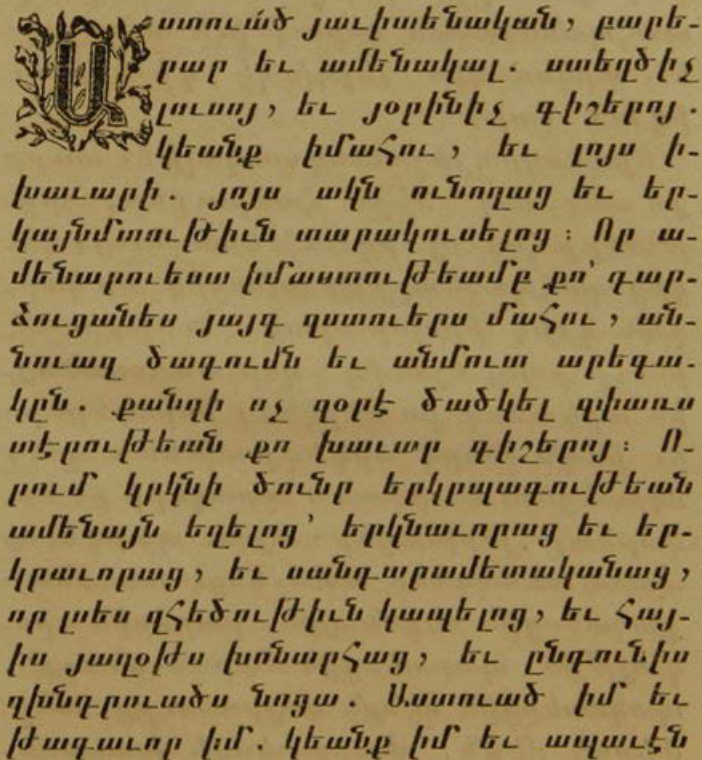 Աստուած յաւիտենական, բարե-
րար եւ ամենակալ. ստեղծիչ
լուսոյ, եւ յօրինիչ գիշերոյ.
կեանք իմահու, եւ լոյս ի-
խաւարի. յոյս ակն ունողաց եւ եր-
կայնմտութիւն տարակուսելոց։ Որ ա-
մենարուեստ իմաստութեամբ քո՝ դար-
ձուցանես յայգ զստուերս մահու, ան-
նուազ ծագումն եւ անմուտ արեգա-
կըն. քանզի ոչ զօրէ ծածկել զփառս
տէրութեան քո խաւար գիշերոյ։ Ո-
րում կրկնի ծունր երկրպագութեան
ամենայն եղելոց՝ երկնաւորաց եւ եր-
կրաւորաց, եւ սանդարամետականաց,
որ լսես զհեծութիւն կապելոց, եւ հայ-
իս յաղօթս խոնարհաց, եւ ընդունիս
զխնդրուածս նոցա. Աստուած իմ եւ
թագաւոր իմ. կեանք իմ եւ ապաւէն